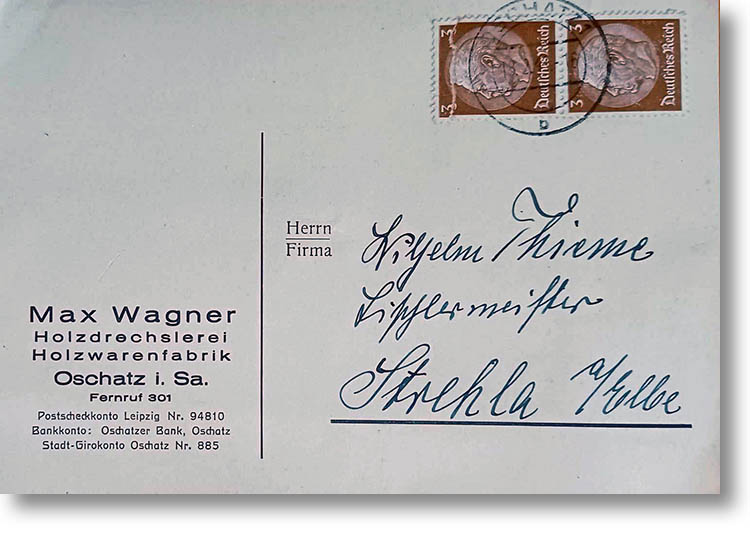 3 Deutsches Reich 3
3 Deutsches Reich 3
OSCHATZ
a
Herrn
Firma
Wilhelm Thieme
Tischlermeister
Strehla a/Elbe
Max Wagner
Holzdrechslerei
Holzwarenfabrik
Oschatz i. Sa.
Fernruf 301
Postscheckkonto Leipzig Nr. 94810
Bankkonto: Oschatzer Bank, Oschatz
Stadt-Girokonto Oschatz Nr. 885